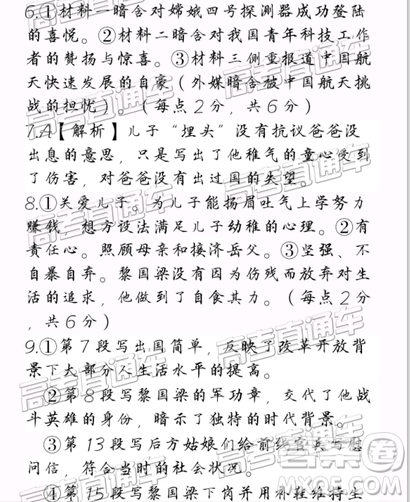 6.①材料一暗含对嫦娥四号探测器成功登陆
的喜悦。②材料二暗含对我国青年科技工作
者的赞扬与惊喜。③材料三侧重报道中国航
天快速发展的自豪（外媒暗含被中国航天挑
战的担忧）。（每点2分，共6分）
7.A【解析】儿子“埋头”没有抗议爸爸没
出息的意思，只是写出了他稚气的童心受到
了伤害，对爸爸没有出过国的失望。
8.①关爱儿子。为儿子能扬眉吐气上学努力
赚钱，想方设法满足儿子幼稚的心理。②有
责任心。照顾母亲和接济岳父。③坚强、不
自暴自弃。黎国梁没有因为伤残而放弃对生
活的追求，他做到了自食其力。（每点2分
，共6分）
9.①第7段写出国简单，反映了改革开放背
景下大部分人生活水平的提高。
②第8段写黎国梁的军功章，交代了他战
斗英雄的身份，暗示了独特的时代背景。
③第13段写后方姑娘们给前线官兵写慰
问信，符合当时的社会状况。
④第15段写黎国梁下岗并用擦鞋维持生
高考直通车
答案圈